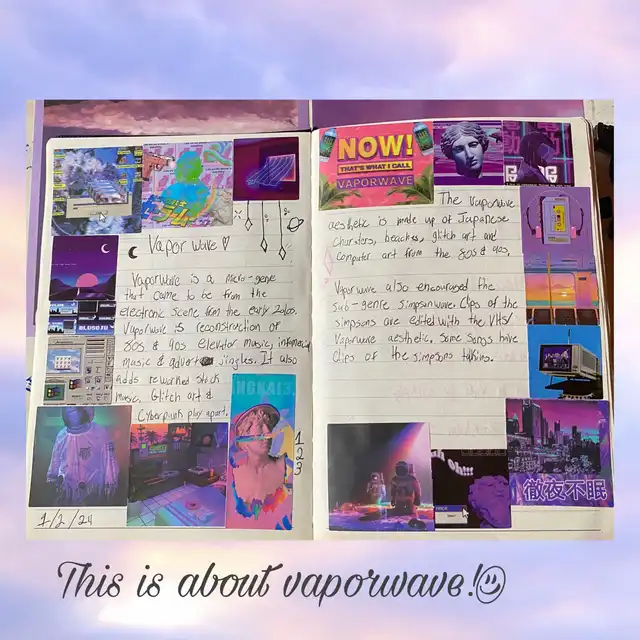 Vapor wave ♡
Vaporwave is a micro-genre
that came to be from the
electronic scene from the early 2010s.
Vaporwave is reconstruction of
80s & 90s elevator music, infomercial
music & advert jingles. It also
adds reworked stock
music, Glitch art &
Cyberpunk play apart.
1
2
3
1/2/24
INGKAI3
NOW!
THAT'S WHAT I CALL
VAPORWAVE
The Vaporwave
aesthetic is made up of Japanese
Charsters, beaches, glitch art and
computer art from the 80s & 90s.
Vaporwave also encouraged the
sub-genre Simpsonwave. Clips of the
simpsons are edited with the VHS/
Vaporwave aesthetic, some songs have
clips of the simpsons talking.
uh oh!!!
徹夜不眠
This is about vaporwave!☺